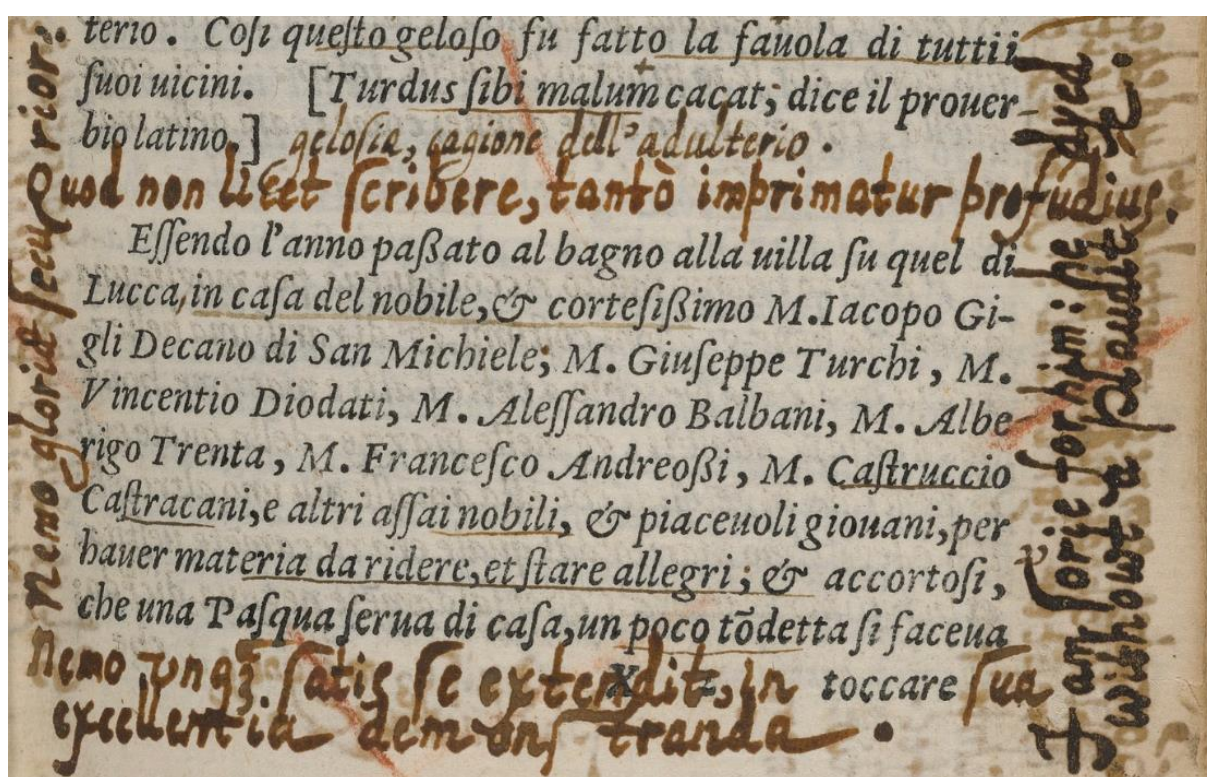 terio. Coſi queſto geloſo fu fatto la fauola di tutti i
ſuoi uicini. [Turdus ſibi malum cacat; dice il prouer-
bio latino.] geloſia, cagione dell'adulterio.
Quod non licet ſcribere, tantò imprimatur profūdius.
Eſſendo l'anno paßato al bagno alla uilla ſu quel di
Lucca, in caſa del nobile, & corteſißimo M. Iacopo Gi-
gli Decano di San Michiele; M. Giuſeppe Turchi, M.
Vincentio Diodati, M. Aleſſandro Balbani, M. Albe-
rigo Trenta, M. Franceſco Andreoßi, M. Caſtruccio
Caſtracani, e altri aſſai nobili, & piaceuoli giouani, per
hauer materia da ridere, et ſtare allegri; & accortoſi,
che una Paſqua ſerua di caſa, un poco tōdetta ſi faceua
X 2 toccare
Nemo vnqȝ ſatis ſe extendit, in ſua
excellentia demonſtranda.
Nemo gloriæ ſecur prior.
I am ſorie for him: he dyed
without a plaudite.